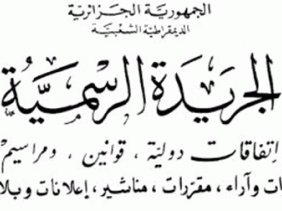 الجمهورية الجزائرية
الديمقراطية الشعبية
الجريدة الرسمية
إتفاقات دولية، قوانين، ومراسيم
ات وآراء، مقررات، مناشير، إعلانات وبلا